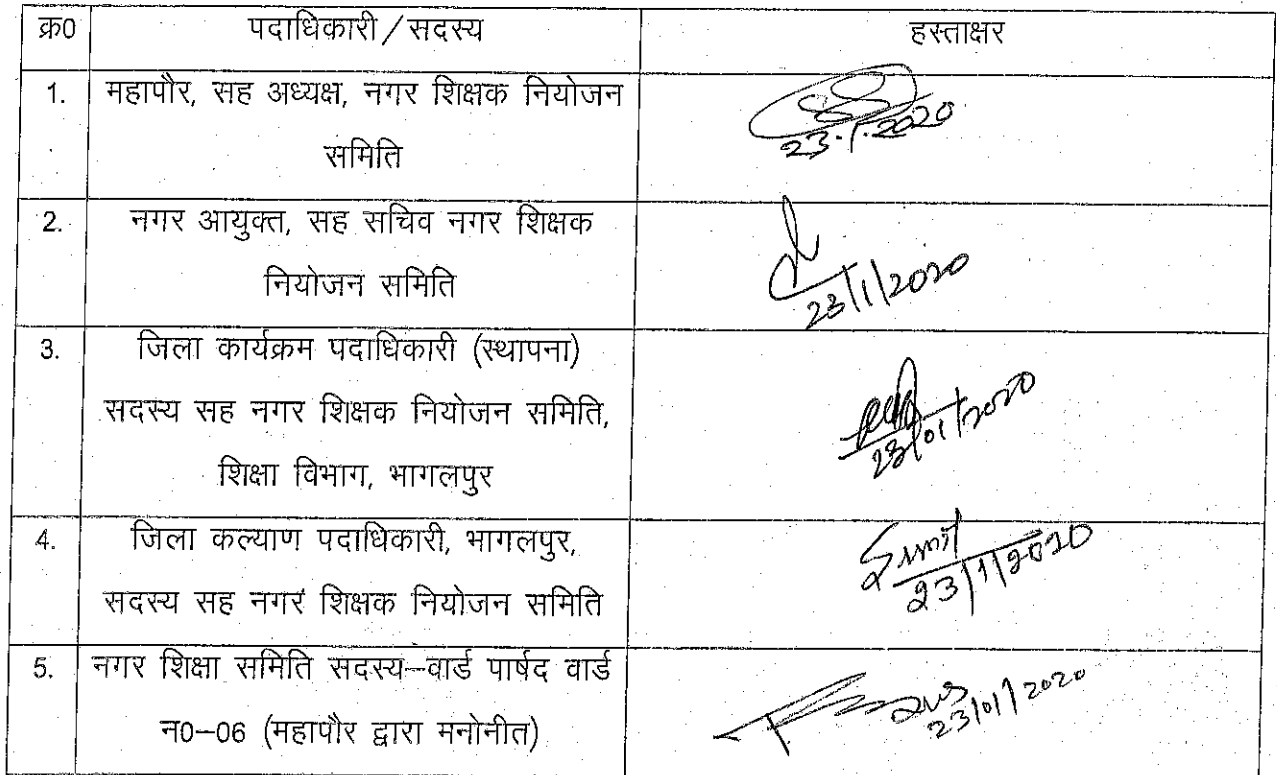 क्र0 पदाधिकारी/सदस्य हस्ताक्षर
1. महापौर, सह अध्यक्ष, नगर शिक्षक नियोजन
समिति
23.1.2020
2. नगर आयुक्त, सह सचिव नगर शिक्षक
नियोजन समिति
23/1/2020
3. जिला कार्यक्रम पदाधिकारी (स्थापना)
सदस्य सह नगर शिक्षक नियोजन समिति,
शिक्षा विभाग, भागलपुर
23/01/2020
4. जिला कल्याण पदाधिकारी, भागलपुर,
सदस्य सह नगर शिक्षक नियोजन समिति
23/1/2020
5. नगर शिक्षा समिति सदस्य–वार्ड पार्षद वार्ड
न0–06 (महापौर द्वारा मनोनीत)
23/01/2020